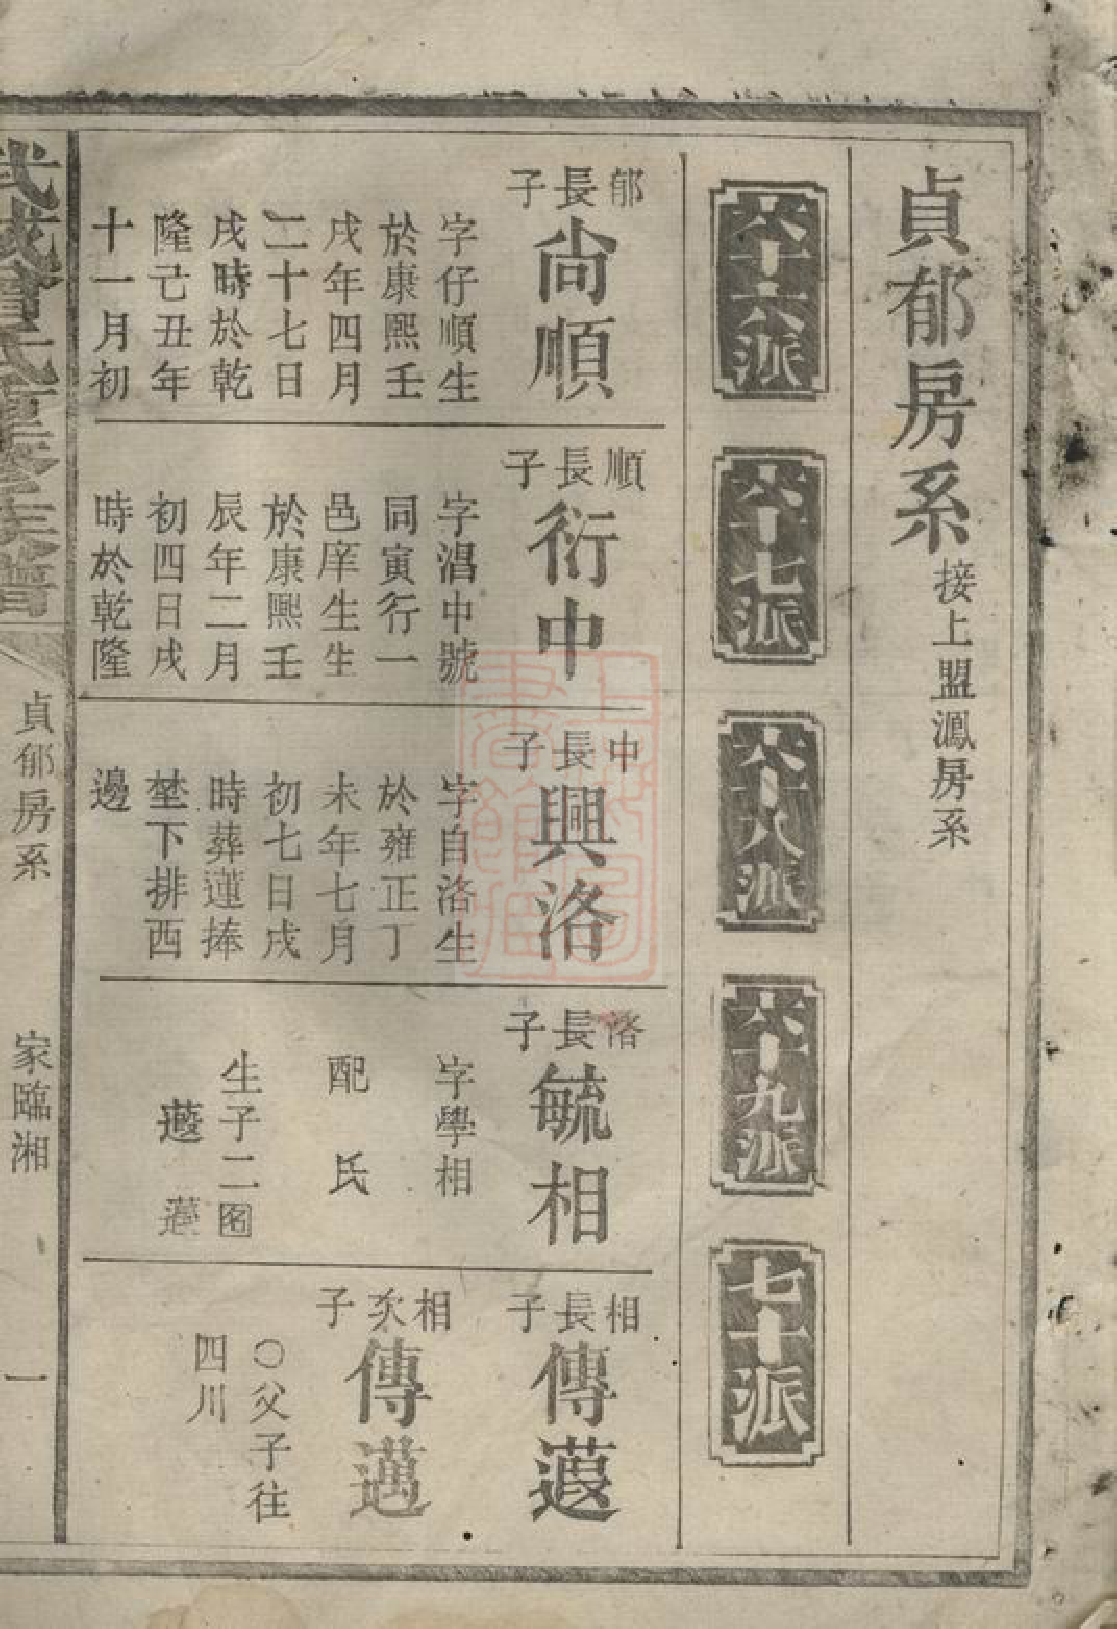 貞郁房系 接上盟鳳房系
六十六派
六十七派
六十八派
六十九派
七十派
郁長子
尚順
字仔順生
於康熙壬
戌年四月
二十七日
戌時於乾
隆己丑年
十一月初
順長子
衍中
字淐中號
同寅行一
邑庠生生
於康熙壬
辰年二月
初四日戌
時於乾隆
中長子
興洛
字自洛生
於雍正丁
未年七月
初七日戌
時葬蓮捧
埜下排西
邊
洛長子
毓相
字學相
配 氏
生子二
相長子
傳蕸
相次子
傳邁
○父子往
四川
武城曾氏重修族譜
貞郁房系
家臨湘
一